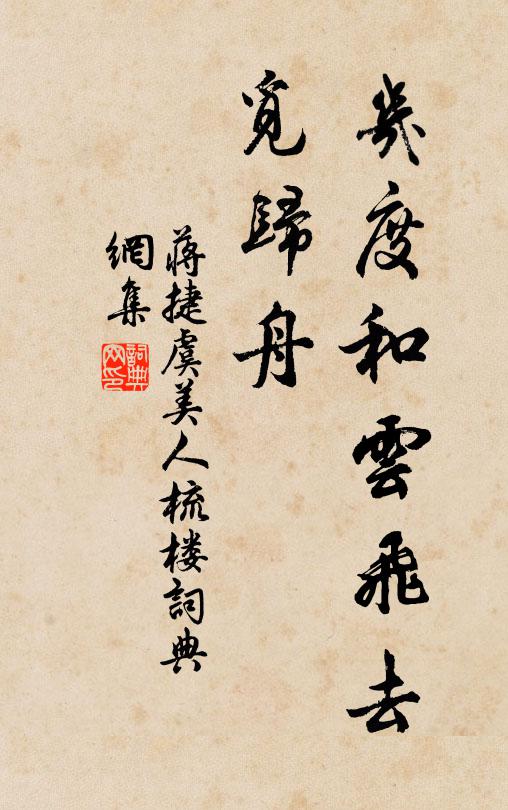 幾度和雲飛去
覓歸舟
蔣捷虞美人梳楼詞典
網集
詞典
网印